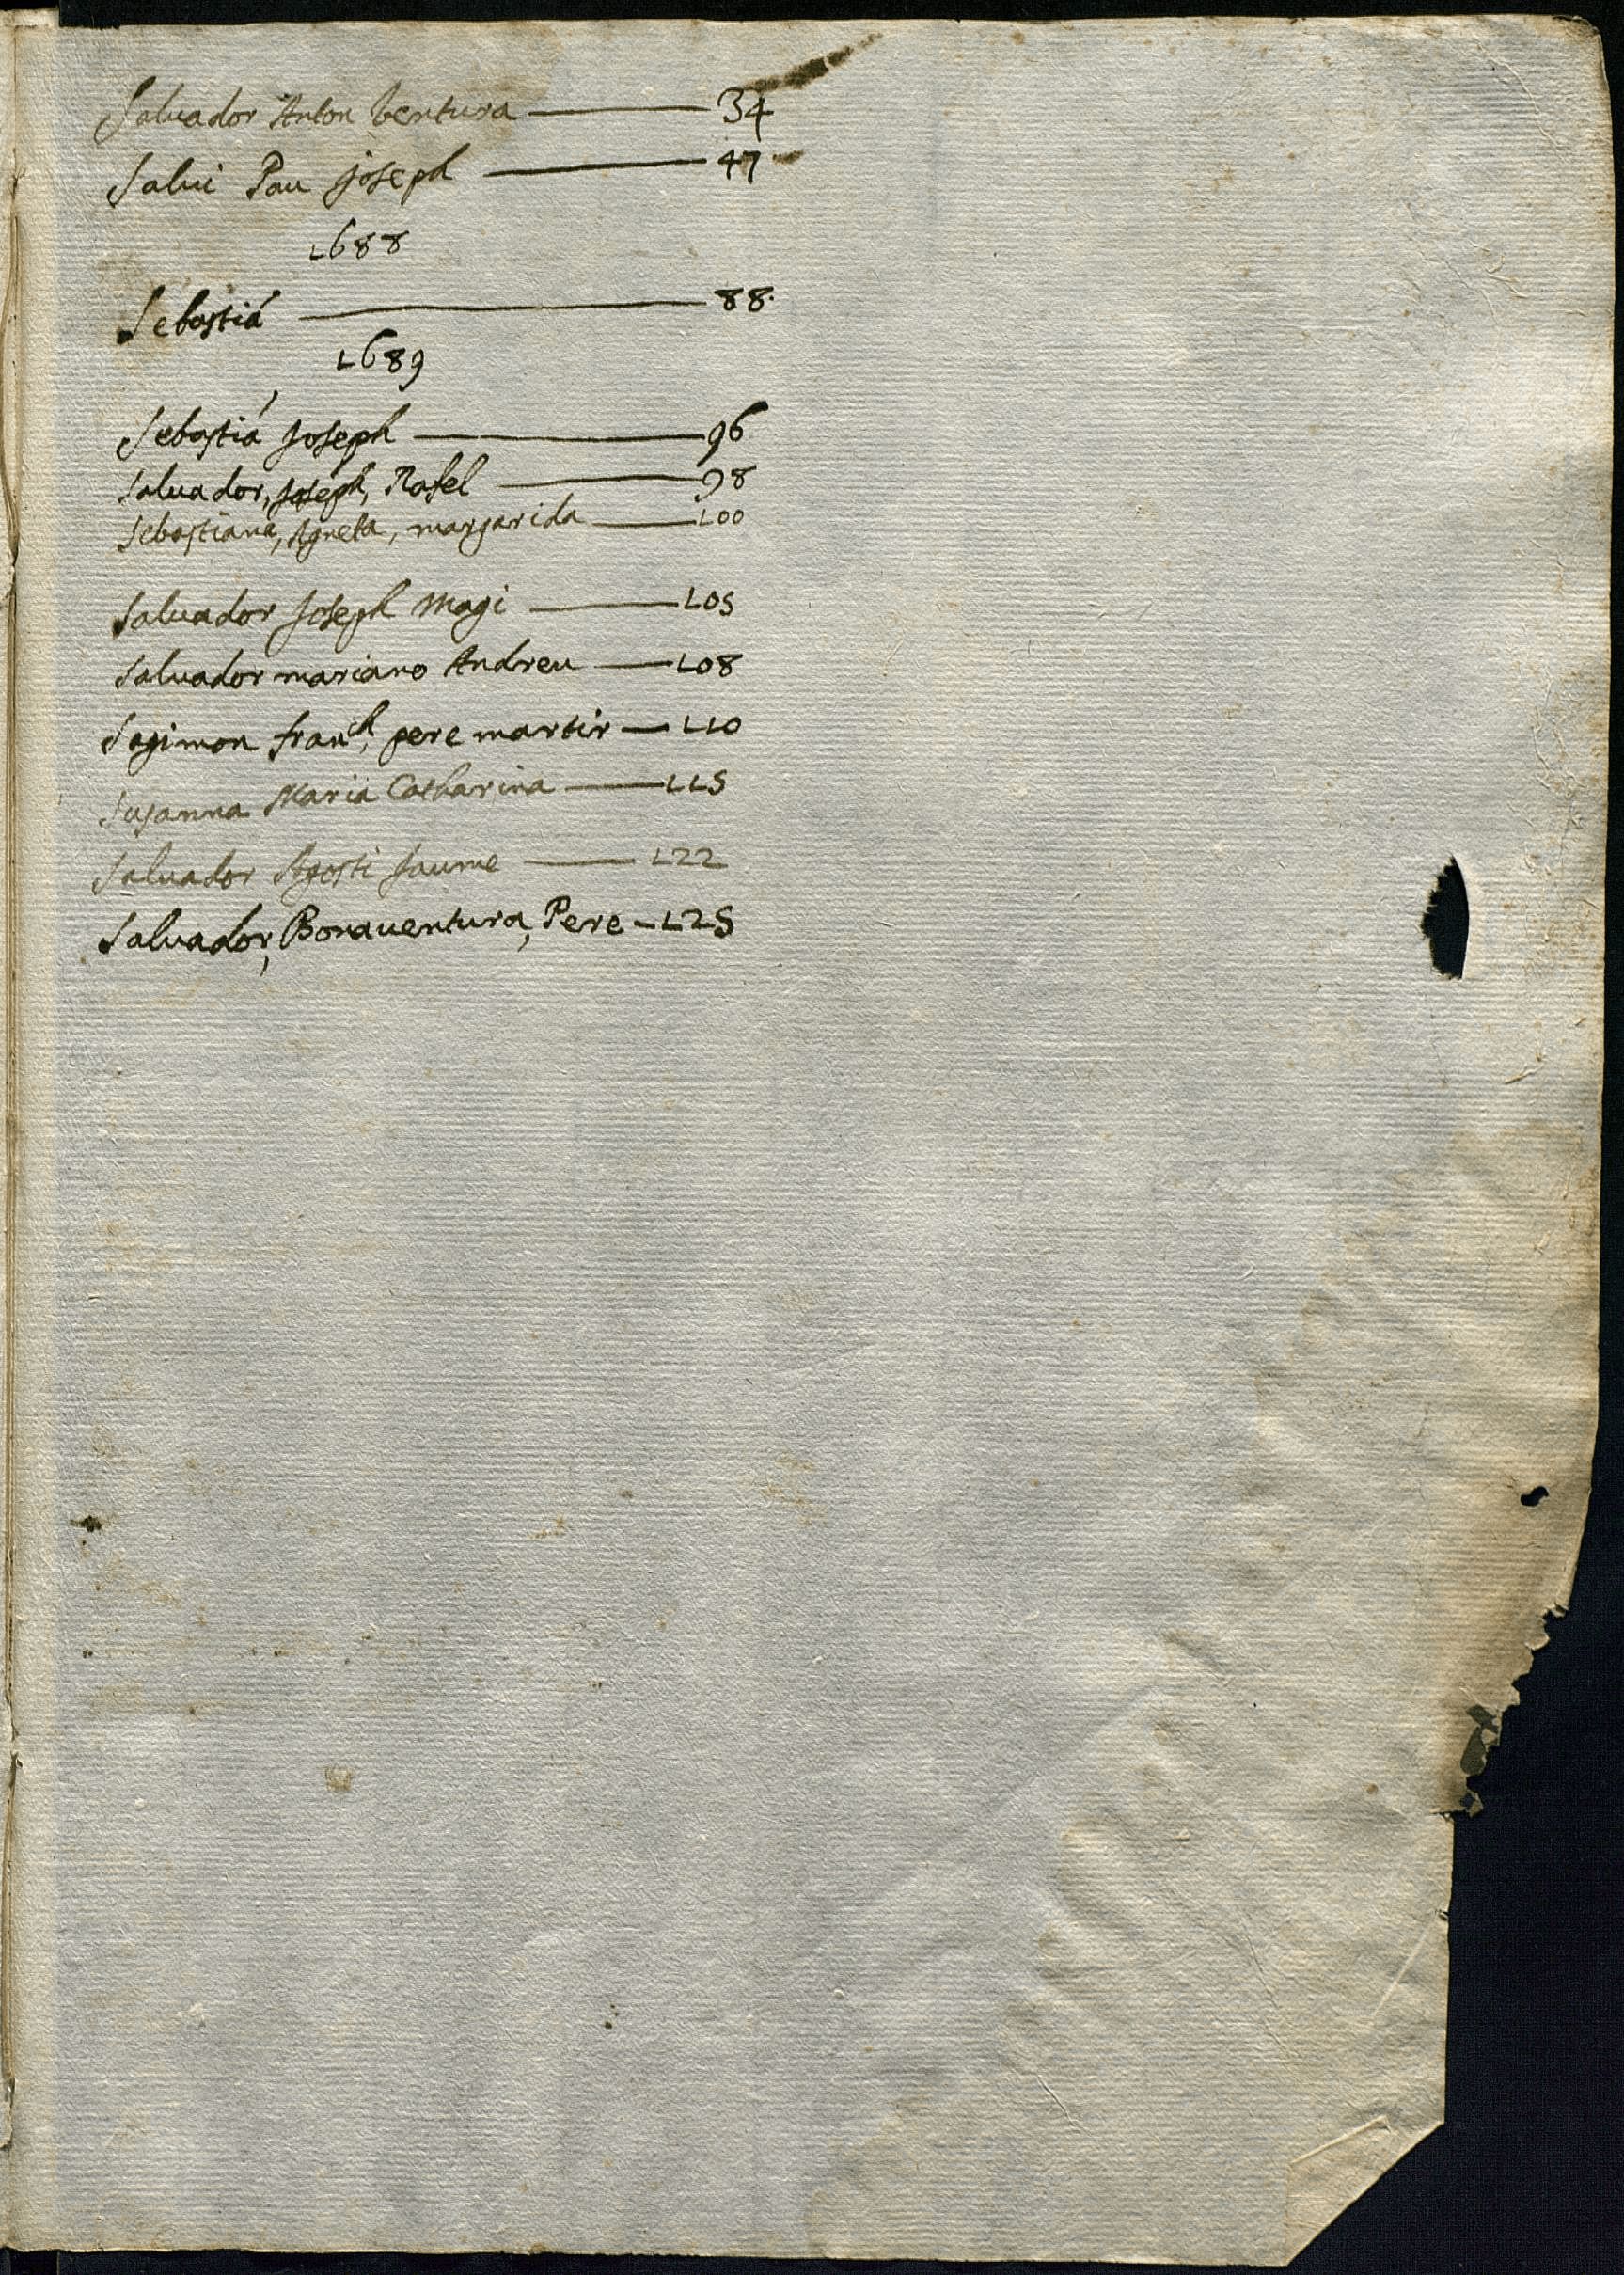 Saluador Anton bentura — 34
Salui Pau Joseph — 47
1688
Sebastiá — 88.
1689
Sebastiá Joseph — 96
Saluador, Joseph, Rafel — 98
Sebastiana, Agneta, margarida — 100
Saluador Joseph Magi — 105
Saluador mariano Andreu — 108
Sagimon franch, pere martir — 110
Susanna Maria Catharina — 115
Saluador Agosti Jaume — 122
Saluador, Bonauentura, Pere — 125